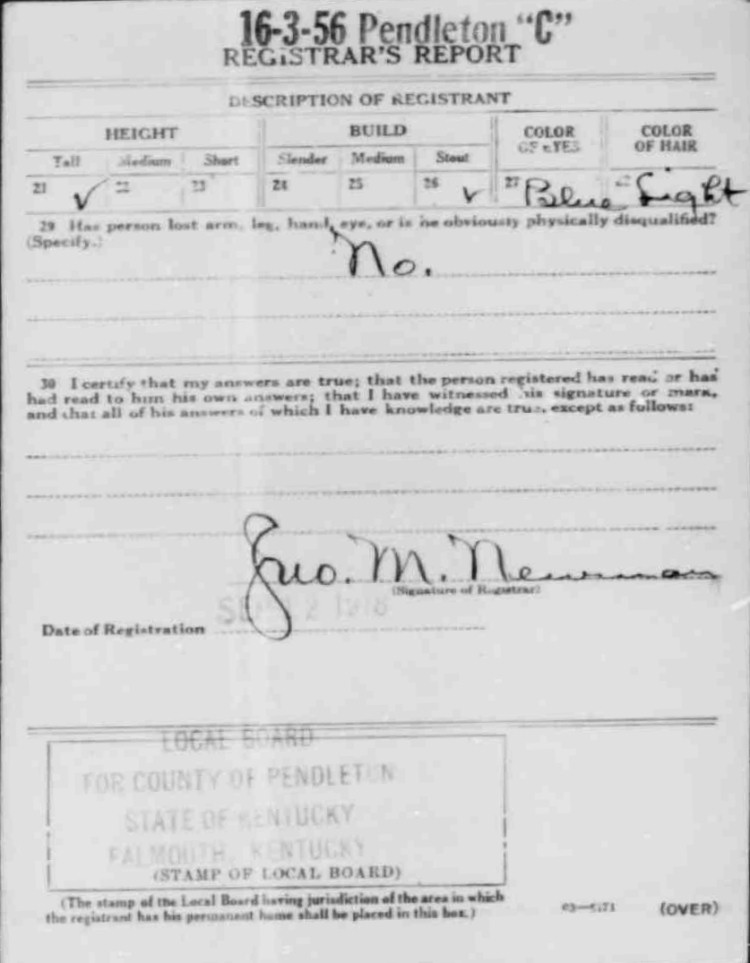 16-3-56 Pendleton "C"
REGISTRAR'S REPORT
DESCRIPTION OF REGISTRANT
HEIGHT BUILD COLOR OF EYES COLOR OF HAIR
Tall Medium Short Slender Medium Stout
21 ✓ 22 23 24 25 26 ✓ 27 Blue Light
29 Has person lost arm, leg, hand, eye, or is he obviously physically disqualified?
(Specify.)
No.
30 I certify that my answers are true; that the person registered has read or has
had read to him his own answers; that I have witnessed his signature or mark,
and that all of his answers of which I have knowledge are true, except as follows:
Jno. M. Newman
(Signature of Registrar)
SEP 12 1918
Date of Registration
LOCAL BOARD
FOR COUNTY OF PENDLETON
STATE OF KENTUCKY
FALMOUTH, KENTUCKY
(STAMP OF LOCAL BOARD)
(The stamp of the Local Board having jurisdiction of the area in which
the registrant has his permanent home shall be placed in this box.)
(OVER)